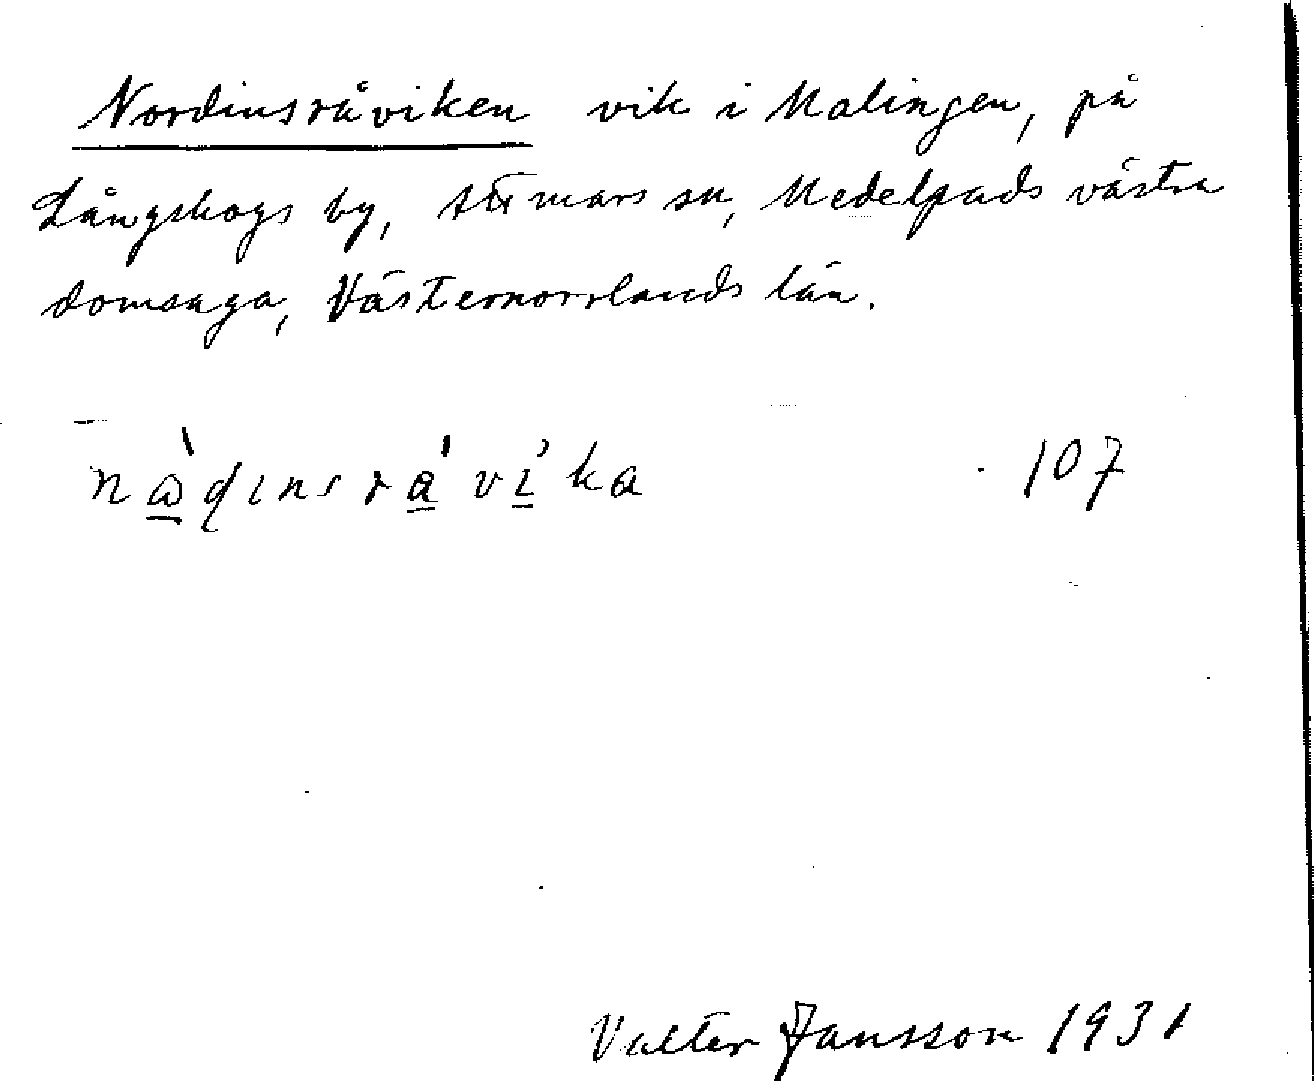 Nordinsråviken vik i Malingen, på
Långskogs by, Attmars sn, Medelpads västra
domsaga, Västernorrlands län.
107
Valter Jansson 1931